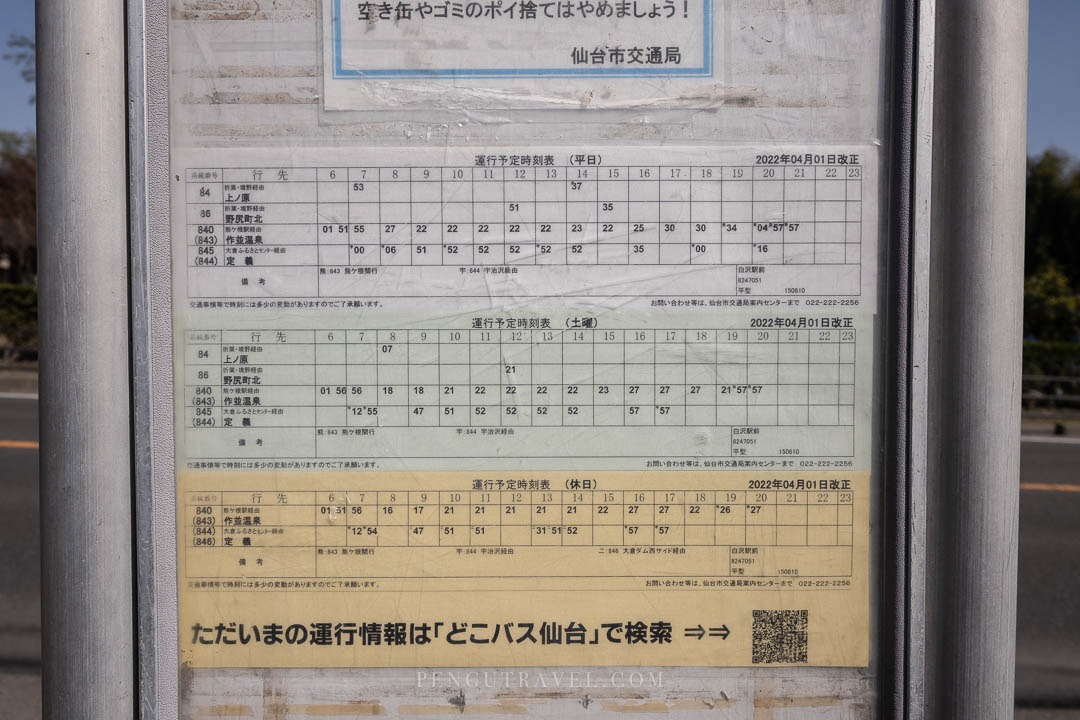 空き缶やゴミのポイ捨てはやめましょう！
仙台市交通局
運行予定時刻表 （平日） 2022年04月01日改正
系統番号 行先 6 7 8 9 10 11 12 13 14 15 16 17 18 19 20 21 22 23
84 折葉・境野経由 53 37
上ノ原
86 折葉・境野経由 51 15 35
野尻町北
840 熊ケ根駅経由 01 51 55 27 22 22 22 22 22 23 22 25 30 30 *34 *04 *57 *57
(843) 作並温泉
845 大倉ふるさとセンター経由 *00 *06 51 *52 52 52 *52 52 35 *00 *16
(844) 定義
備考 熊:843 熊ケ根関行 宇:844 宇治沢経由 白沢駅前
8247051
平型 150610
交通事情等で時刻には多少の変動がありますのでご了承願います。 お問い合わせ等は、仙台市交通局案内センターまで 022-222-2256
運行予定時刻表 （土曜） 2022年04月01日改正
系統番号 行先 6 7 8 9 10 11 12 13 14 15 16 17 18 19 20 21 22 23
84 折葉・境野経由 07
上ノ原
86 折葉・境野経由 21
野尻町北
840 熊ケ根駅経由 01 56 56 18 18 21 22 22 22 22 23 27 27 27 21 *57 *57
(843) 作並温泉
845 大倉ふるさとセンター経由 *12 *55 47 51 52 52 52 52 57 *57
(844) 定義
備考 熊:843 熊ケ根関行 宇:844 宇治沢経由 白沢駅前
8247051
平型 150610
交通事情等で時刻には多少の変動がありますのでご了承願います。 お問い合わせ等は、仙台市交通局案内センターまで 022-222-2256
運行予定時刻表 （休日） 2022年04月01日改正
系統番号 行先 6 7 8 9 10 11 12 13 14 15 16 17 18 19 20 21 22 23
840 熊ケ根駅経由 01 51 56 16 17 21 21 21 21 21 22 27 27 22 *26 *27
(843) 作並温泉
(844) 大倉ふるさとセンター経由 *12 *54 47 51 51 31 51 52 *57 *57
(846) 定義
備考 熊:843 熊ケ根関行 宇:844 宇治沢経由 二:846 大倉ダム西サイド経由 白沢駅前
8247051
平型 150610
交通事情等で時刻には多少の変動がありますのでご了承願います。 お問い合わせ等は、仙台市交通局案内センターまで 022-222-2256
ただいまの運行情報は「どこバス仙台」で検索 ⇒⇒
PENGUTRAVEL.COM